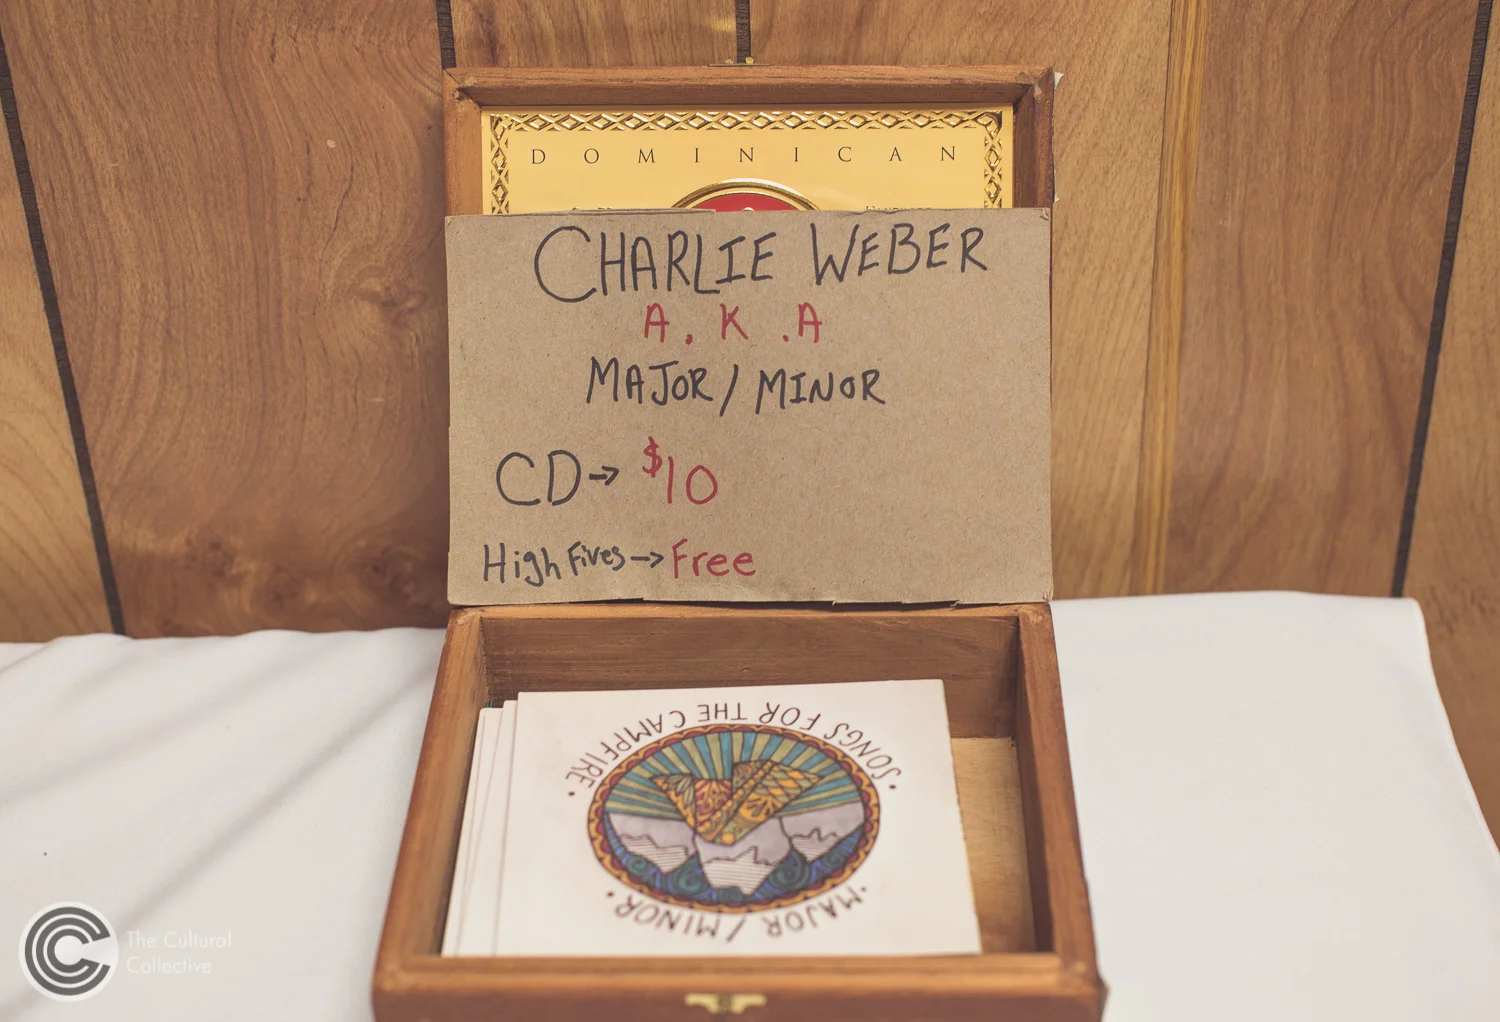 DOMINICAN
CHARLIE WEBER
A.K.A
MAJOR/MINOR
CD→ $10
High Fives→Free
SONGS FOR THE CAMPFIRE
MAJOR / MINOR
The Cultural
Collective